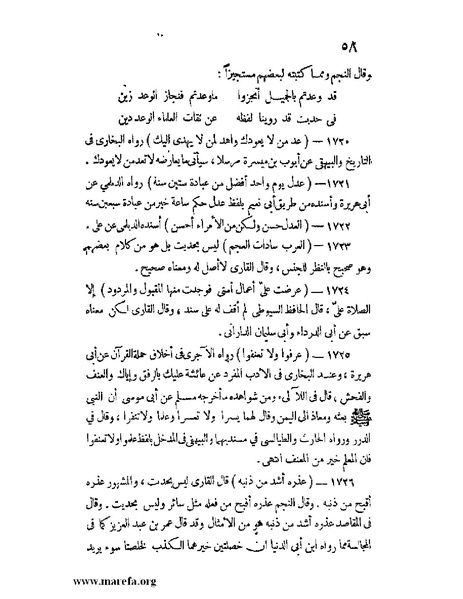 ٥٨
وقال النجم ومما كتبته لبعضهم مستجيزاً :
قد وعدتم بالجميل أنجزوا ما وعدتم فنجاز الوعد زين
فى حديث قد روينا لفظه عن ثقات العلماء الوعد دين
١٧٢٠ — ( عد من لا يعودك واهد لمن لا يهدى اليك ) رواه البخارى فى
التاريخ والبيهقى عن أيوب بن ميسرة مرسلا ، سيأتى ما يعارضه لا تعد من لا يعودك .
١٧٢١ — ( عدل يوم واحد أفضل من عبادة ستين سنة ) رواه الديلمى عن
أبى هريرة وأسنده من طريق أبى نعيم بلفظ عدل حكم ساعة خير من عبادة سبعين سنة
١٧٢٢ — ( العدل حسن ولكن من الأمراء أحسن ) أسنده الديلمى عن على .
١٧٢٣ — ( العرب سادات العجم ) ليس بحديث بل هو من كلام بعضهم
وهو صحيح بالنظر للجنس ، وقال القارى لا أصل له ومعناه صحيح .
١٧٢٤ — ( عرضت علىّ أعمال أمتى فوجدت منها المقبول والمردود ) إلا
الصلاة علىّ ، قال الحافظ السيوطى لم أقف له على سند ، وقال القارى لكن معناه
سبق عن أبى الدرداء وأبى سليمان الدارانى .
١٧٢٥ — ( عرفوا ولا تعنفوا ) رواه الآجرى فى أخلاق حملة القرآن عن أبى
هريرة ، وعند البخارى فى الادب المفرد عن عائشة عليك بالرفق وإياك والعنف
والفحش ، قال فى اللآلىء ومن شواهده ما أخرجه مسلم عن أبى موسى أن النبى
ﷺ بعثه ومعاذا الى اليمن وقال لهما يسرا ولا تعسرا وعلما ولا تنفرا ، وقال فى
الدرر ورواه الحارث والطيالسي في مسنديهما والبيهقى فى المدخل بلفظ علموا ولا تعنفوا
فان المعلم خير من المعنف انتهى .
١٧٢٦ — ( عذره أشد من ذنبه ) قال القارى ليس بحديث ، والمشهور عذره
أقبح من ذنبه . وقال النجم عذره أقبح من فعله مثل سائر وليس بحديث . وقال
فى المقاصد عذره أشد من ذنبه هو من الأمثال وقد قال عمر بن عبد العزيز كما فى
المجالسة مما رواه ابن أبى الدنيا ان خصلتين خيرهما الكذب لخصلتا سوء يريد
www.marefa.org